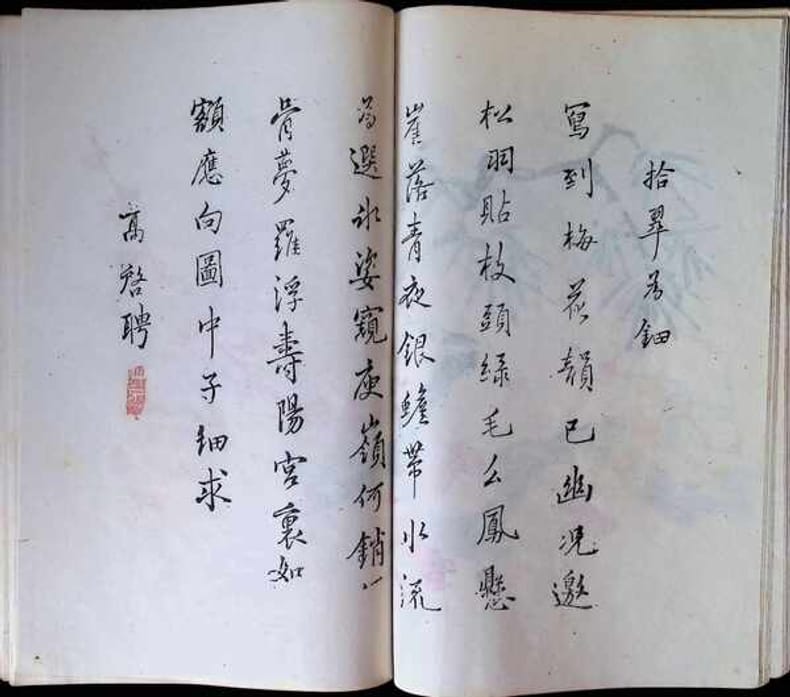 拾翠為鈿
寫到梅花韻已幽況邀
松羽貼枝頭綠毛么鳳懸
崖落青夜銀蟾帶水流
為選冰姿窺庾嶺何銷
骨夢羅浮壽陽宮裏如
額應向圖中子細求
高啓聘